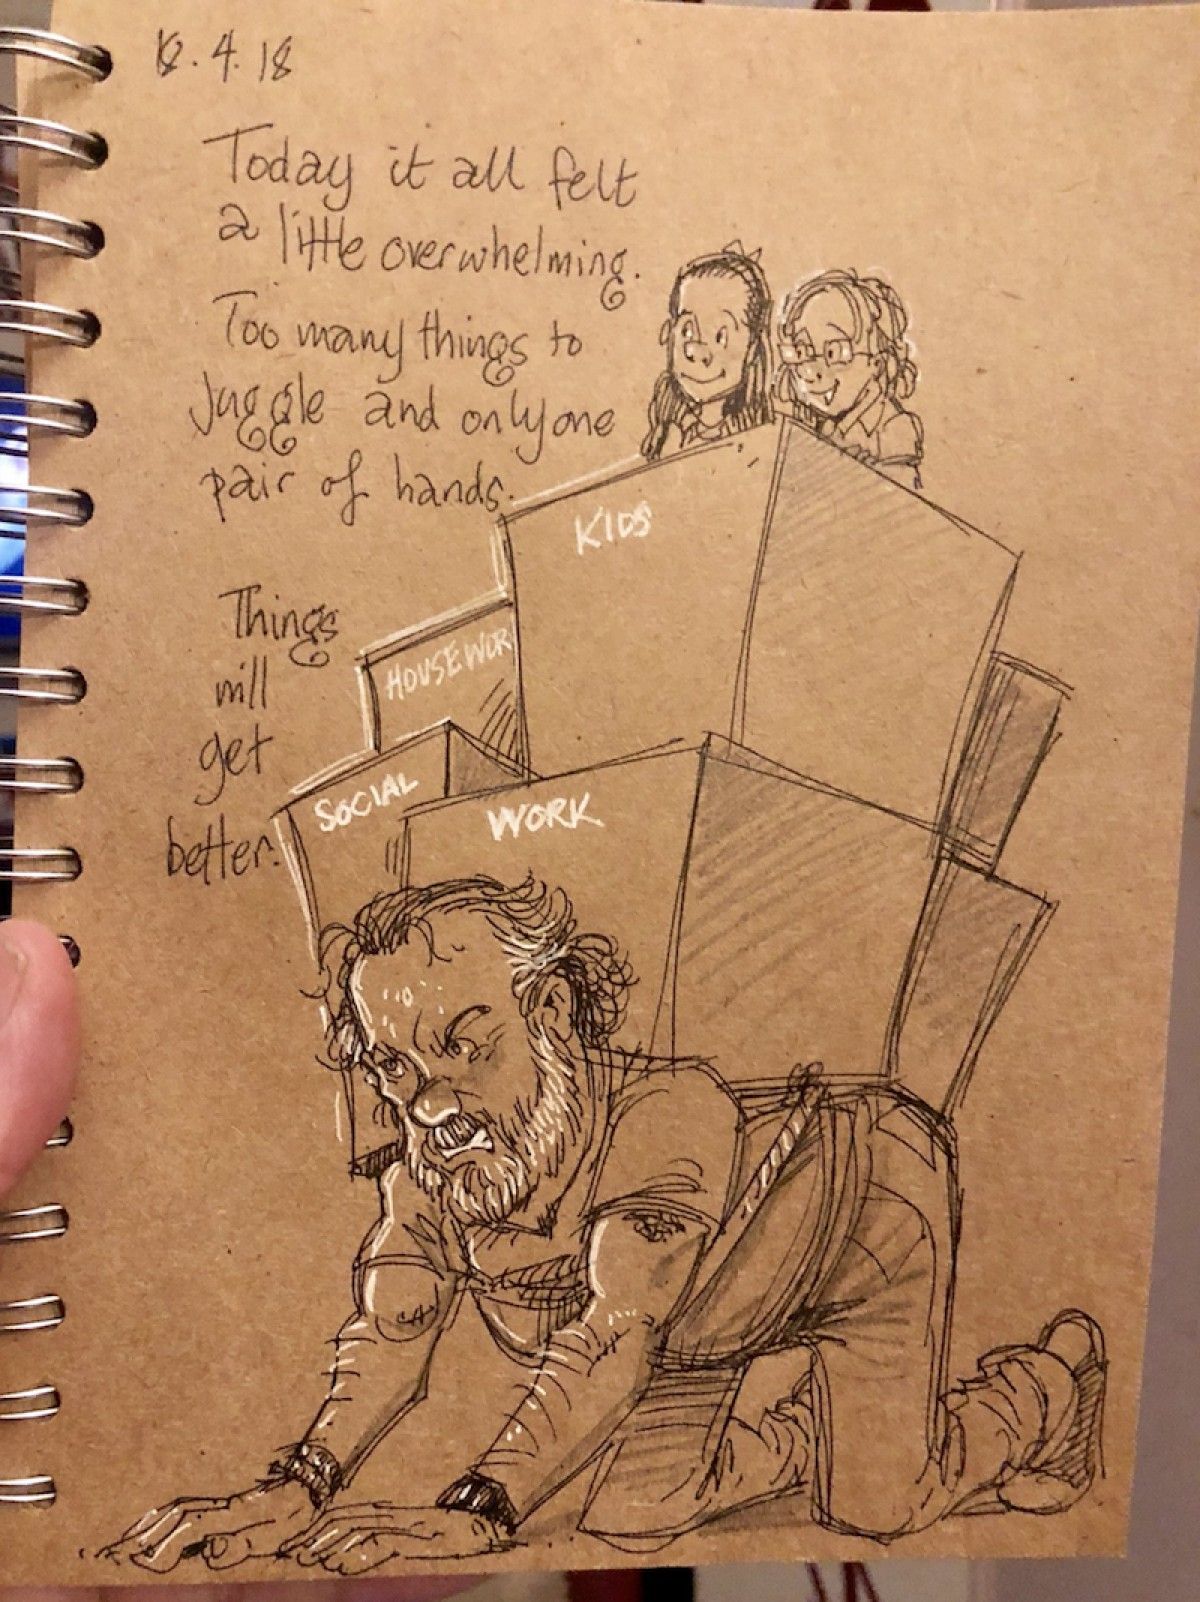 12.4.18
Today it all felt
a little overwhelming.
Too many things to
juggle and only one
pair of hands.
Things
will
get
better.
KIDS
HOUSEWOR
SOCIAL
WORK